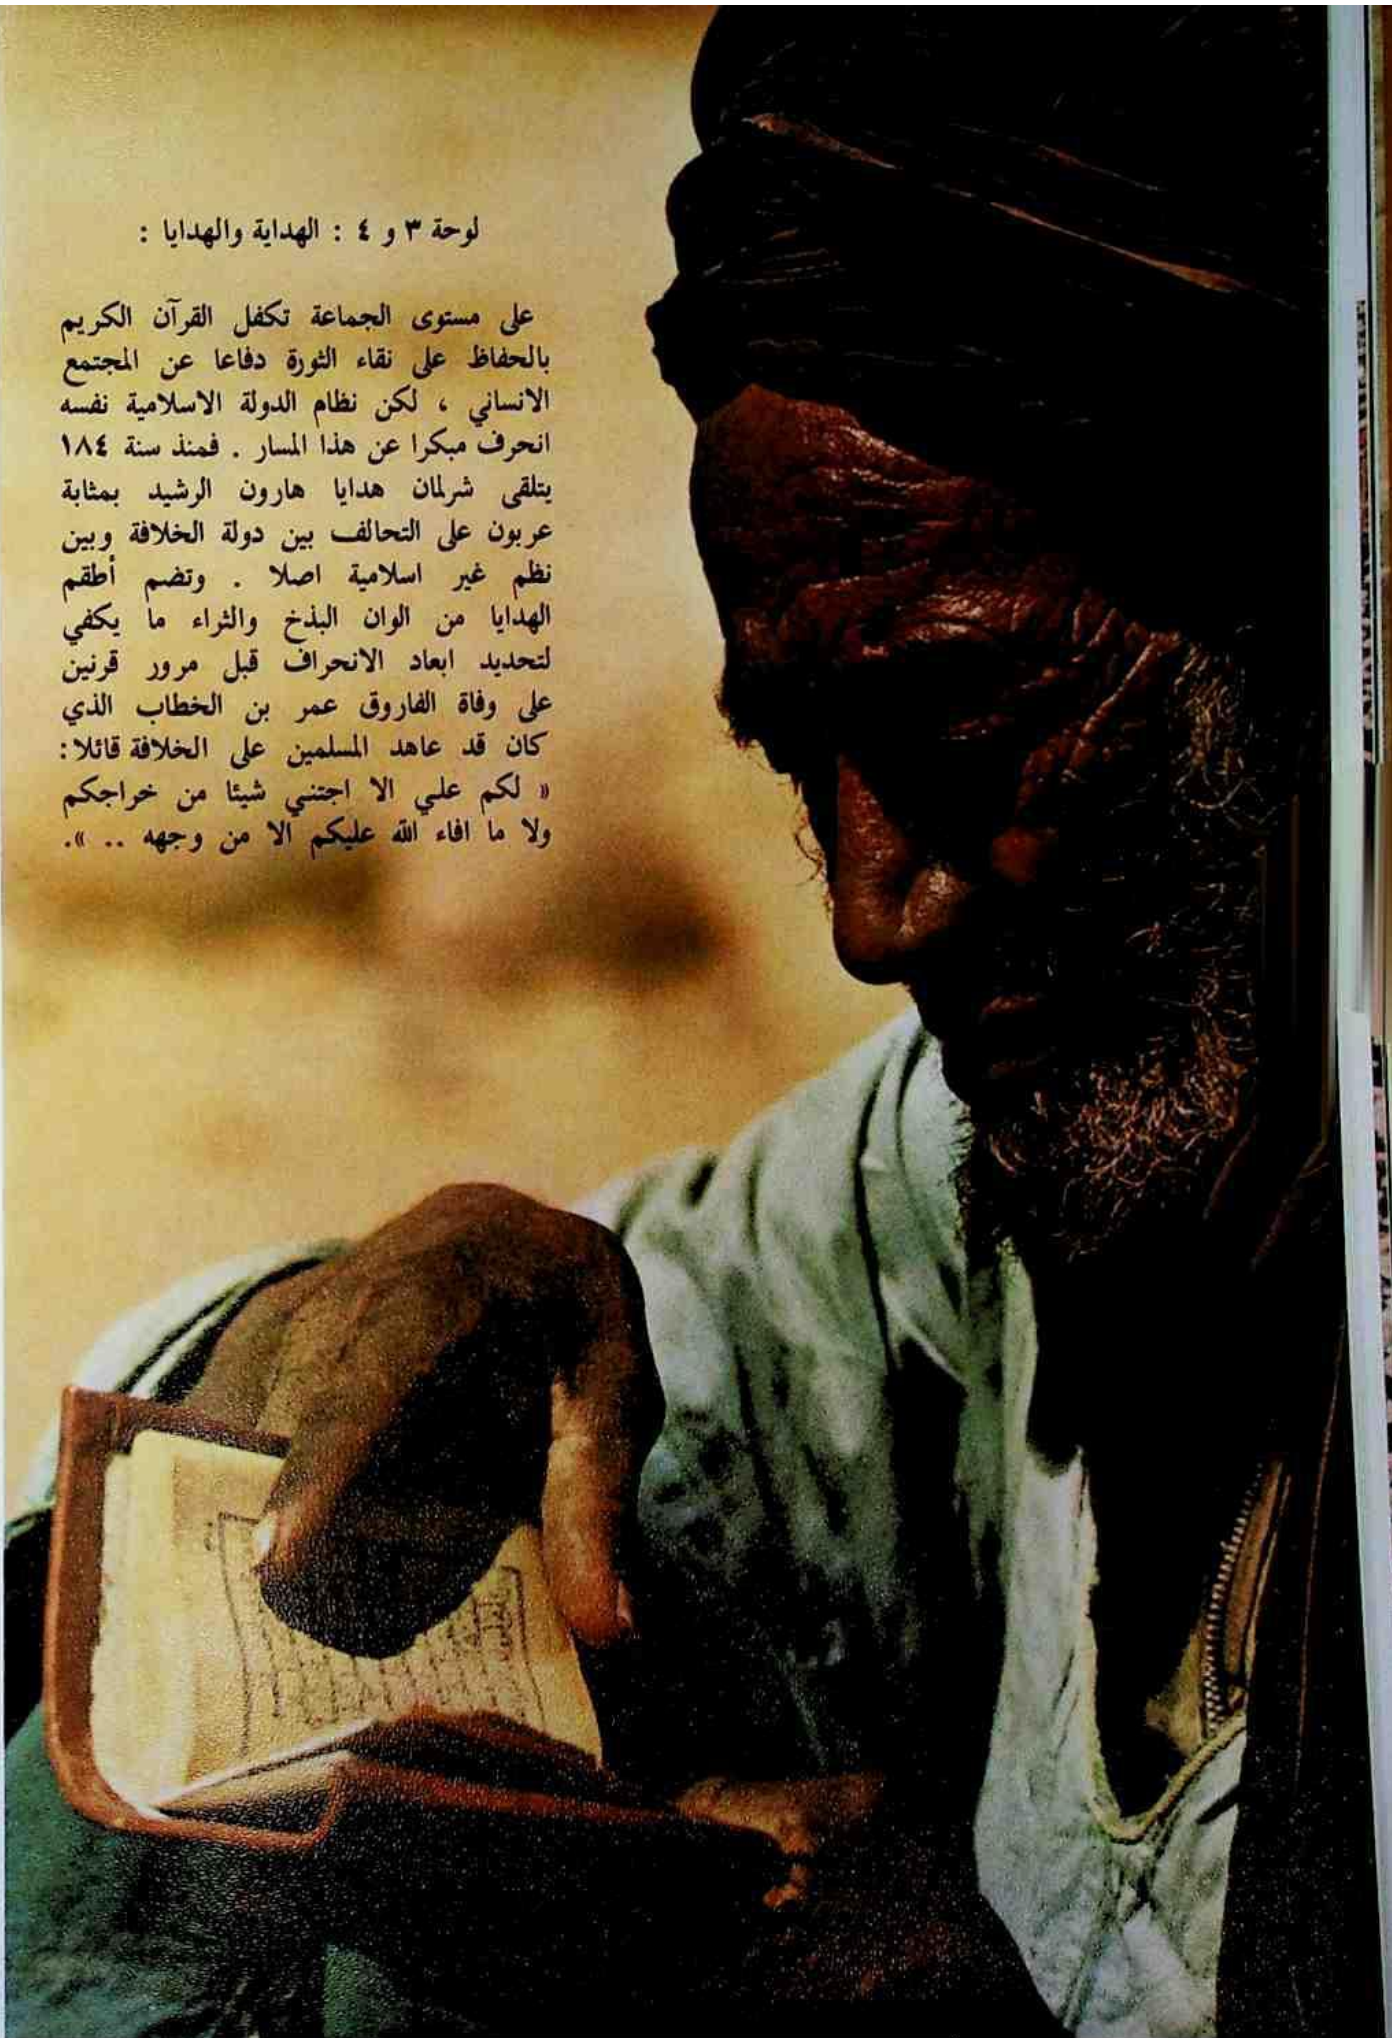 لوحة ٣ و ٤ : الهداية والهدايا :
على مستوى الجماعة تكفل القرآن الكريم
بالحفاظ على نقاء الثورة دفاعا عن المجتمع
الانساني ، لكن نظام الدولة الاسلامية نفسه
انحرف مبكرا عن هذا المسار . فمنذ سنة ١٨٤
يتلقى شرلمان هدايا هارون الرشيد بمثابة
عربون على التحالف بين دولة الخلافة وبين
نظم غير اسلامية اصلا . وتضم أطقم
الهدايا من الوان البذخ والثراء ما يكفي
لتحديد ابعاد الانحراف قبل مرور قرنين
على وفاة الفاروق عمر بن الخطاب الذي
كان قد عاهد المسلمين على الخلافة قائلا :
« لكم علي الا اجتني شيئا من خراجكم
ولا ما افاء الله عليكم الا من وجهه .. ».